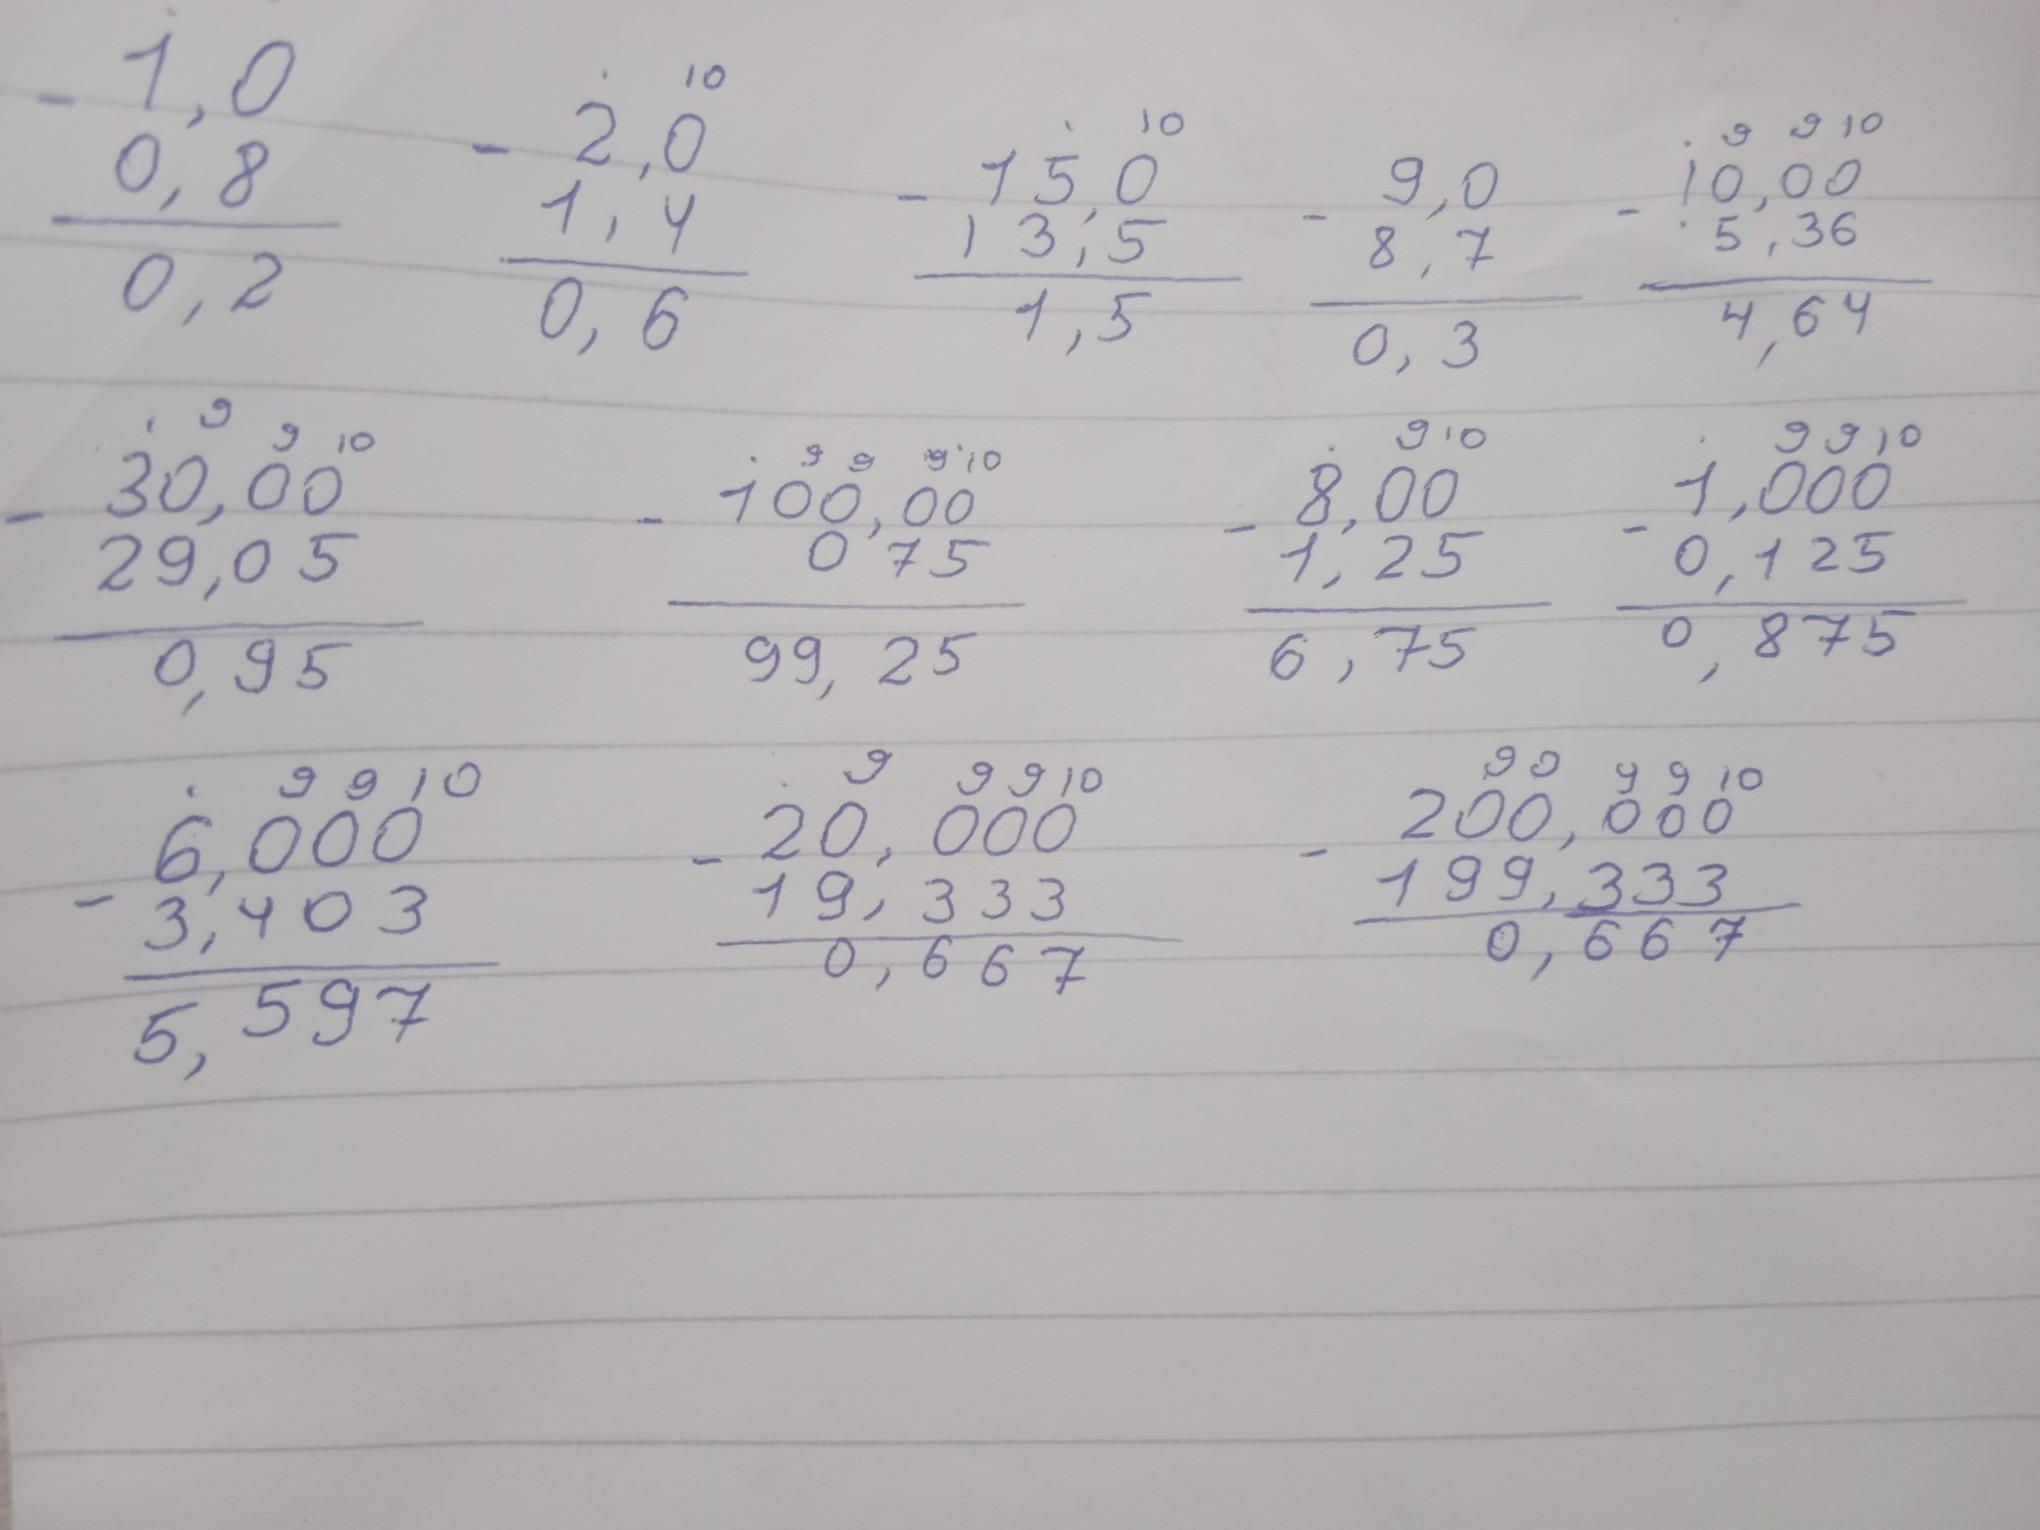 1,0 - 0,8 = 0,2
10
2,0 - 1,4 = 0,6
10
15,0 - 13,5 = 1,5
9,0 - 8,7 = 0,3
9 9 10
10,00 - 5,36 = 4,64
9 9 10
30,00 - 29,05 = 0,95
9 9 9 10
100,00 - 0 75 = 99,25
9 10
8,00 - 1,25 = 6,75
9 9 10
1,000 - 0,125 = 0,875
9 9 10
6,000 - 3,403 = 5,597
9 9 9 10
20,000 - 19,333 = 0,667
9 9 9 9 10
200,000 - 199,333 = 0,667